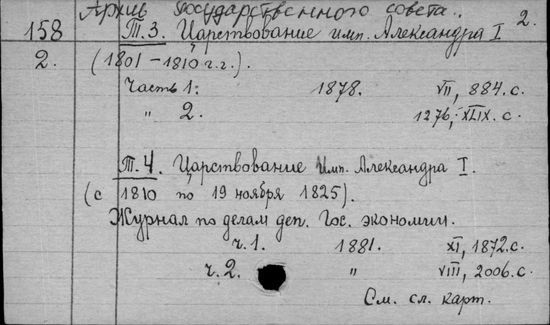 Архив Государственного совета. 2.
158 Т. 3. Царствование имп. Александра I
2. (1801 – 1810 г.г.).
Часть 1. 1878. VII, 884. с.
" 2. 1276, XLIX. с.
Т. 4. Царствование Имп. Александра I.
(с 1810 по 19 ноября 1825).
Журнал по делам деп. Гос. экономии.
ч. 1. 1881. XI, 1872. с.
ч. 2. " VIII, 2006. с.
См. сл. карт.